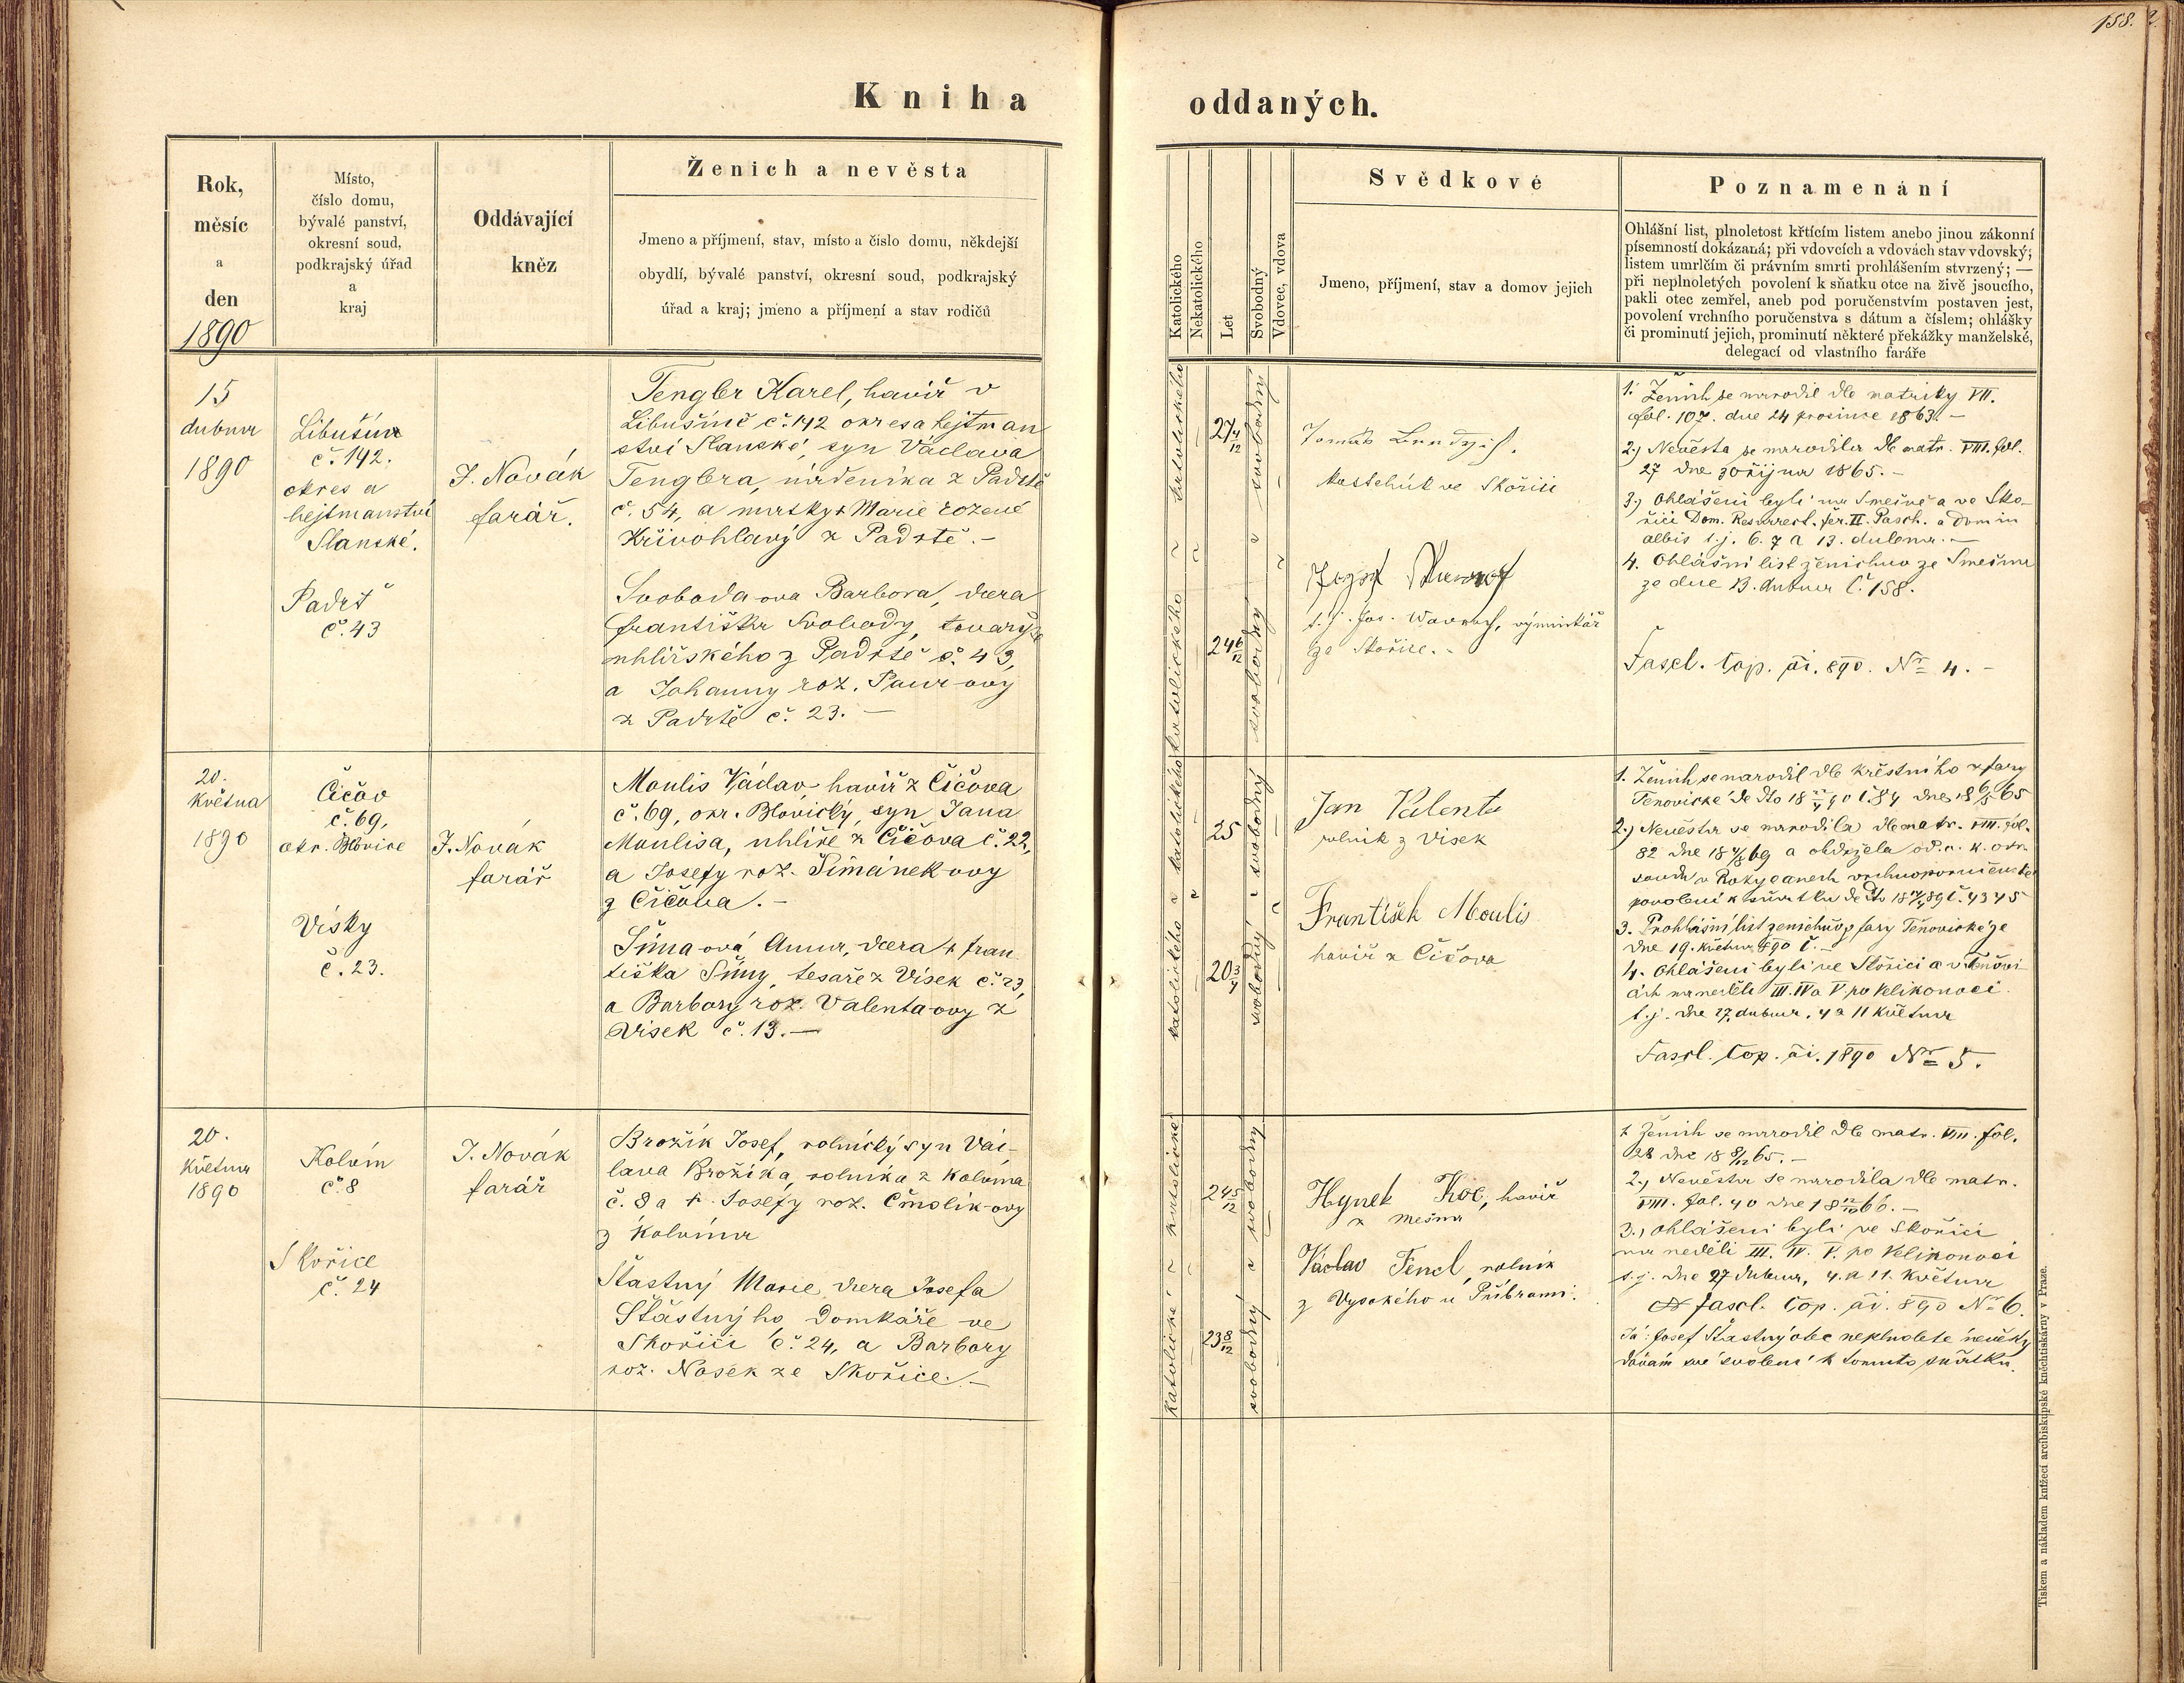 158.
Kniha oddaných.
Rok,
měsíc
a
den
1890
Místo,
číslo domu,
bývalé panství,
okresní soud,
podkrajský úřad
a
kraj
Oddávající
kněz
Ženich a nevěsta
Jmeno a příjmení, stav, místo a číslo domu, někdejší
obydlí, bývalé panství, okresní soud, podkrajský
úřad a kraj; jmeno a příjmení a stav rodičů
Katolického
Nekatolického
Let
Svobodný
Vdovec, vdova
Svědkové
Jmeno, příjmení, stav a domov jejich
Poznamenání
Ohlášní list, plnoletost křtícím listem anebo jinou zákonní
písemností dokázaná; při vdovcích a vdovách stav vdovský;
listem umrlčím či právním smrti prohlášením stvrzený; —
při neplnoletých povolení k sňatku otce na živě jsoucího,
pakli otec zemřel, aneb pod poručenstvím postaven jest,
povolení vrchního poručenstva s dátum a číslem; ohlášky
či prominutí jejich, prominutí některé překážky manželské,
delegací od vlastního faráře
15
dubna
1890
Libušina
č. 142.
okres a
hejtmanství
Slanské.
Padrť
č. 43
J. Novák
farář.
Tengler Karel, havíř v
Libušíně č. 142 okres a hejtman
ství Slanské, syn Václava
Tenglera, nádeníka z Padrtě
č. 54, a matky † Marie rozené
Křivohlavý z Padrtě. —
Svoboda-ova Barbora, dcera
Františka Svobody, tovaryše
uhlířského z Padrtě č. 43,
a Johanny roz. Paur-ovy
z Padrtě č. 23. —
katolického
katolického
27 4/12
24 6/12
svobodný
svobodný
Tomáš
ve Skořici
Jozef
t. j. Jos. Wavroch, výminkář
ze Skořice. -
1. Ženich se narodil dle matriky VII.
fol. 107. dne 24 prosince 1863. —
2.) Nevěsta se narodila dle matr. VIII. fol.
27 dne 30 října 1865. —
3.) Ohlášeni byli na Smečně a ve Sko-
řici Dom. Resurrect. fer. II. Pasch. a Dom in
albis t. j. 6. 7 a 13. dubna. —
4. Ohlášní list ženichův ze Smečna
ze dne 13. dubna č. 158.
Fascl. cop. ai. 890. Nr 4. -
20.
Května
1890
Čičov
č. 69,
okr. Blovice
Vísky
č. 23.
J. Novák
farář
Moulis Václav havíř z Čičova
č. 69, okr. Blovický, syn Jana
Moulisa, uhlíře z Čičova č. 22,
a Josefy roz. Šimánek-ovy
z Čičova. —
Šíma-ová Anna, dcera † Fran
tiška Šímy, tesaře z Vísek č. 23,
a Barbory roz. Valenta-ovy z
Vísek č. 13. —
katolického
katolického
25
20 3/4
svobodný
svobodný
Jan Valenta
rolník z Visek
František Moulis
havíř z Čičova
1. Ženich se narodil dle křestního z fary
2.) Nevěsta se narodila dle matr. VIII. fol.
82 dne a obdržela od c. k. okr.
soudu v Rokycanech vrchnoporučenské
povolení k sňatku č. 4345
3. Prohlášní list ženichův z fary Tenovické ze
dne 19. května 890 č. —
4. Ohlášeni byli ve Skořici a v Tenovi
cích na neděli III. IV a V. po Velikonoci
t. j. dne 27. dubna, 4 a 11 Května
Fascl. cop. ai. 1890 Nr 5.
20.
Května
1890
Kolvín
č. 8
Skořice
č. 24
J. Novák
farář
Brožík Josef, rolnický syn Vác-
lava Brožíka, rolníka z Kolvína
č. 8 a † Josefy roz. Čmolík-ovy
z Kolvína
Šťastný Marie, dcera Josefa
Šťastnýho, Domkáře ve
Skořici č. 24, a Barbory
roz. Nosek ze Skořice. —
katolické
katolické
24 5/12
23 8/12
svobodný
svobodný
Hynek Koc, havíř
z Mešna
Václav Fencl, rolník
z Vysokého u Příbrami.
1 Ženich se narodil dle matr. VIII. fol.
28 dne 18 8/12 65. —
2.) Nevěsta se narodila dle matr.
VIII. fol. 40 dne —
3.) Ohlášeni byli ve Skořici
na neděli III. IV. V. po Velikonoci
t. j. dne 27 dubna, 4. a 11. Května
fascl. cop. ai. 890 Nr 6.
Já: Josef Šťastný otec neplnoleté nevěsty
dávám své svolení k tomuto sňatku.
Tiskem a nákladem knížecí arcibiskupské kněhtiskárny v Praze.